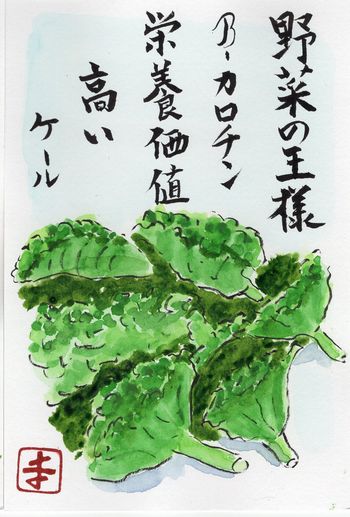 野菜の王様
B-カロチン
栄養価値
高い
ケール